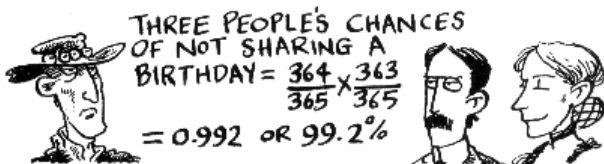 THREE PEOPLE'S CHANCES
OF NOT SHARING A
BIRTHDAY = 364/365 × 363/365
= 0.992 OR 99.2%